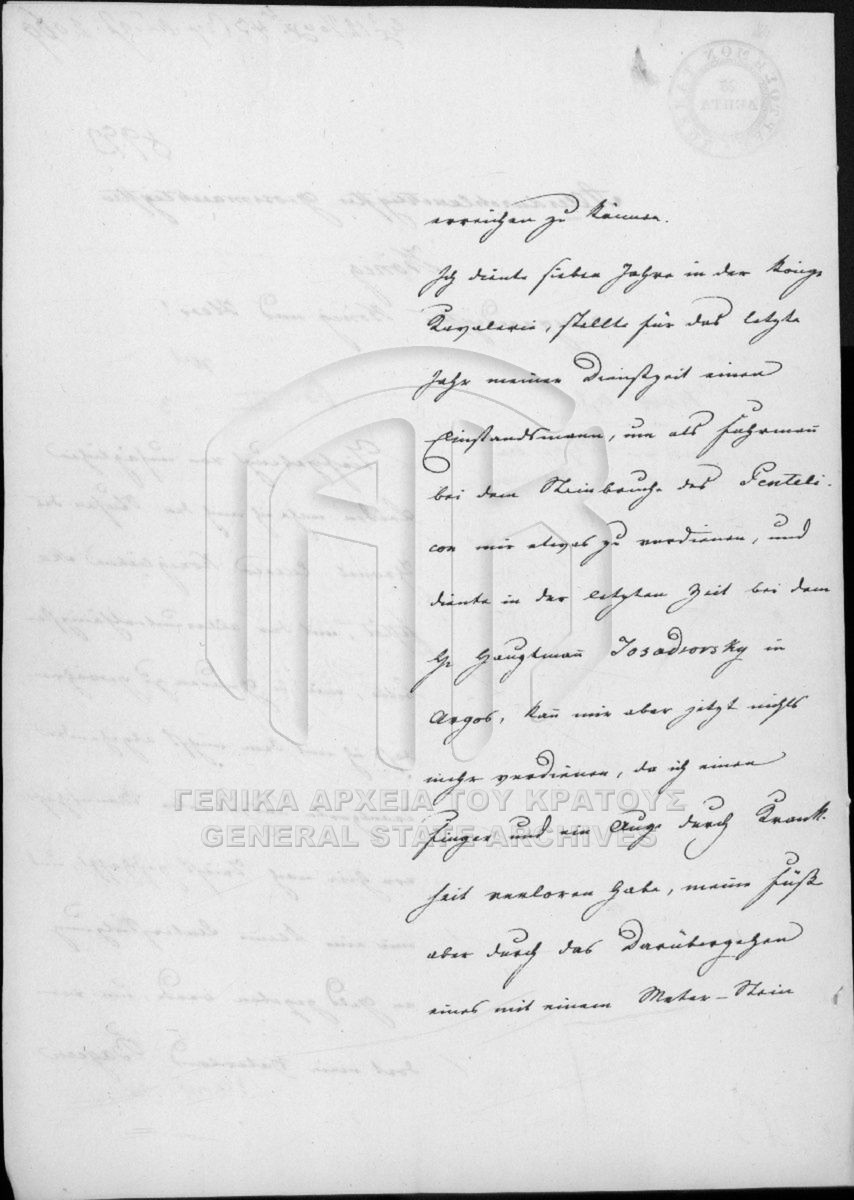 erreichen zu können.
Ich diente sieben Jahre in der königl
Kavalerie, stellte für das letzte
Jahr meiner Dienstzeit einen
Einstandsmann, um als Fuhrmañ
bei dem Steinbruche des Penteli-
con mir etwas zu verdienen, und
diente in der letzten Zeit bei dem
H: Hauptmañ in
Argos, kañ mir aber jetzt nichts
mehr verdienen, da ich einen
ΓΕΝΙΚΑ ΑΡΧΕΙΑ ΤΟΥ ΚΡΑΤΟΥΣ
GENERAL STATE ARCHIVES
Finger und ein Auge durch Krank-
heit verloren habe, meine Füße
aber durch das Darübergehen
eines mit einem Meter-Stein